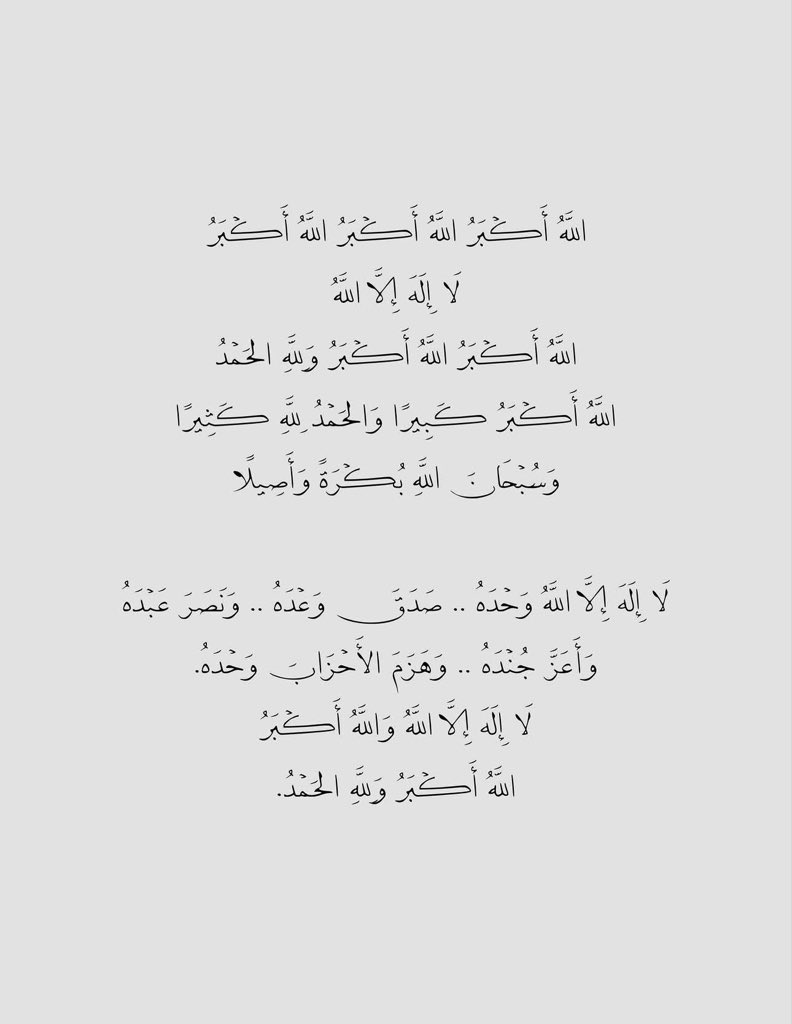 اللَّهُ أَكْبَرُ اللَّهُ أَكْبَرُ اللَّهُ أَكْبَرُ
لَا إِلَهَ إِلَّا اللَّهُ
اللَّهُ أَكْبَرُ اللَّهُ أَكْبَرُ وَلِلَّهِ الحَمْدُ
اللَّهُ أَكْبَرُ كَبِيرًا وَالحَمْدُ لِلَّهِ كَثِيرًا
وَسُبْحَانَ اللَّهِ بُكْرَةً وَأَصِيلًا
لَا إِلَهَ إِلَّا اللَّهُ وَحْدَهُ .. صَدَقَ وَعْدَهُ .. وَنَصَرَ عَبْدَهُ
وَأَعَزَّ جُنْدَهُ .. وَهَزَمَ الأَحْزَابَ وَحْدَهُ.
لَا إِلَهَ إِلَّا اللَّهُ وَاللَّهُ أَكْبَرُ
اللَّهُ أَكْبَرُ وَلِلَّهِ الحَمْدُ.